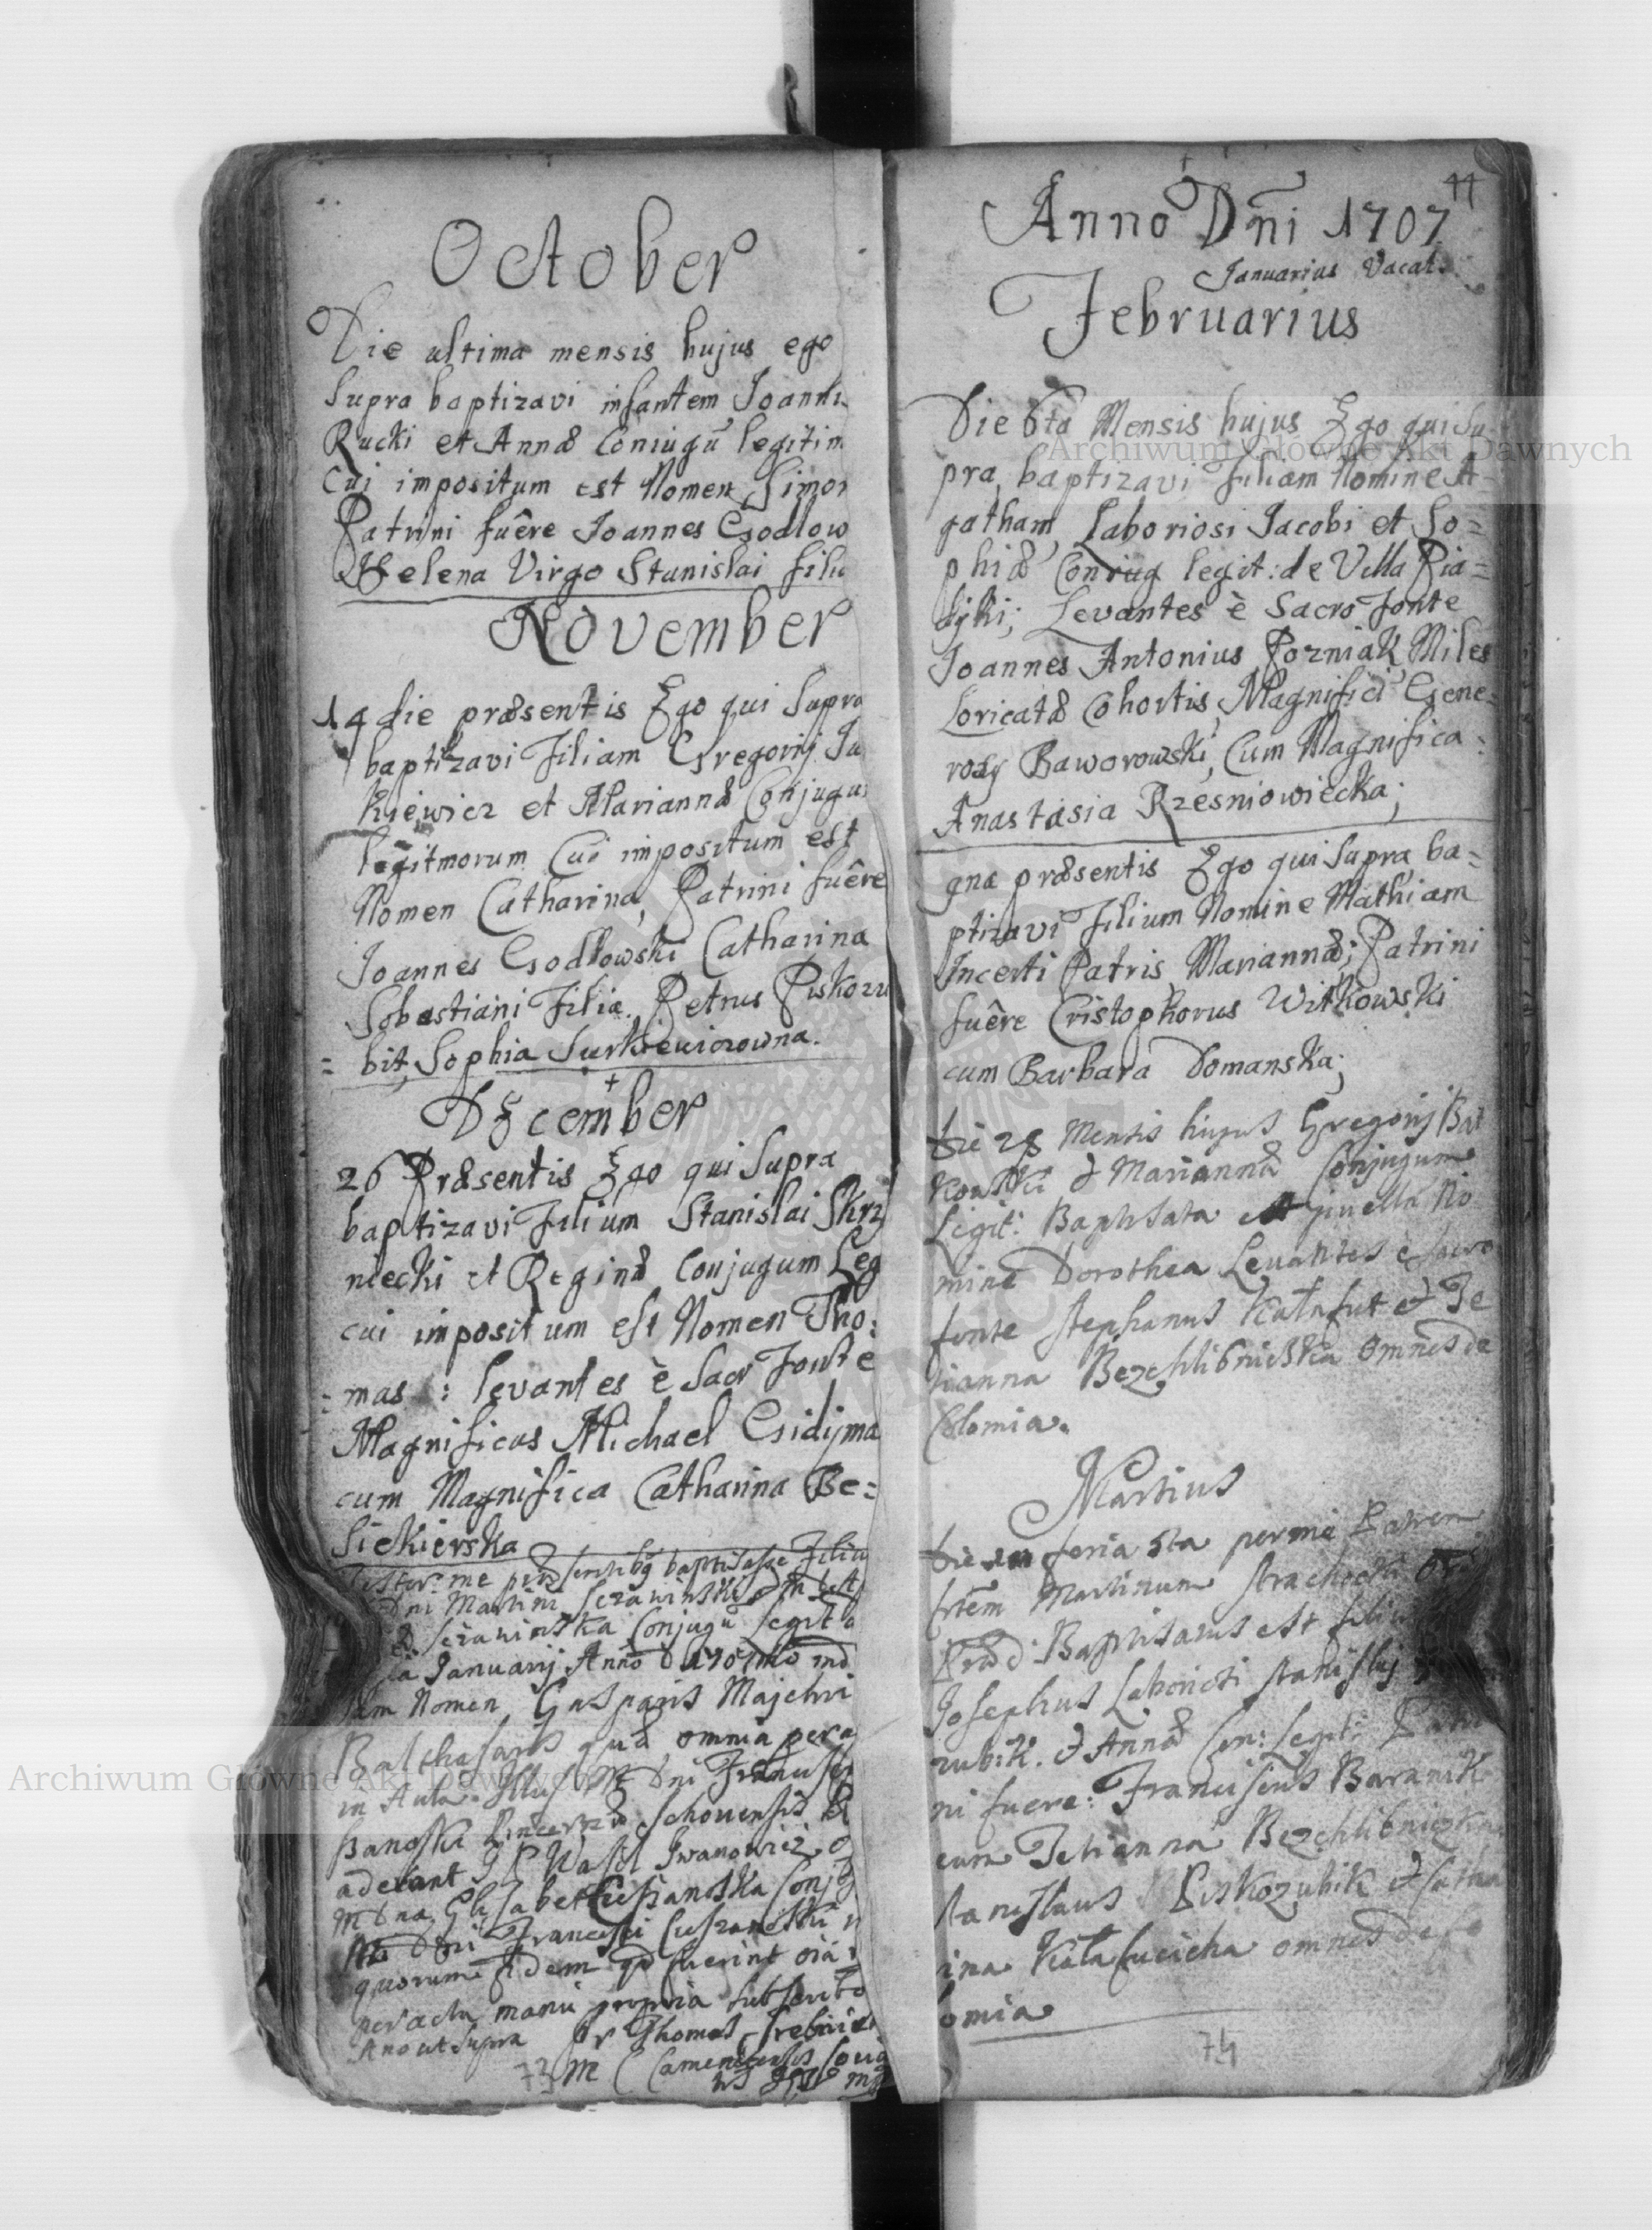 October
Die ultima mensis hujus ego
supra baptizavi infantem Joanni
Rucki et Annæ Coniugū legitim
Cui impositum est Nomen Simon
Patrini fuêre Joannes Godlow
Helena Virgo Stanislai filia
November
14 die præsentis Ego qui supra
baptizavi Filiam Gregorij Ju
kiewicz et Mariannæ Conjugu
legitmorum Cui impositum est
Nomen Catharina, Patrini fuêre
Joannes Godlowski Catharina
Sobastiani Filia. Petrus Piskozu
= bit, Sophia Surkiewiczowna.
December
26 Præsentis Ego qui supra
baptizavi Filium Stanislai Skrzy
niecki et Reginæ Conjugum Leg
cui impositum est Nomen Tho:
: mas : levantes è Sacr Fonte
Magnificus Michael Gidijma
cum Magnifica Catharina Be=
siekierska
me baptisasse Filiu
Dni Martini
Conjugū legit
Januarij Anno
Nomen Gasparis Majchri
omnia pera
in Aula
adebant Iwanowicz
Dna Elisabet Conj
Dni Francisci
quorum fidem qd fuerint oia
peracta manu propria subscribo
Ano ut supra Fr Thomas
73
44
Anno Dni 1707
Januarius Vacat.
Februarius
Die 6ta Mensis hujus Ego qui Su
pra baptizavi Filiam Nomine A-
gatham, Laboriosi Jacobi et So=
phiæ Coniug legit: de Villa Pia=
dyki; Levantes è Sacro Fonte
Joannes Antonius Pozniak Miles
Loricatæ Cohortis, Magnifici Gene=
rosy Baworowski, Cum Magnifica
Anastasia Rzesniowiecka;
9na præsentis Ego qui supra ba=
ptizavi Filium Nomine Mathiam
Incerti Patris, Mariannæ; Patrini
fuêre Cristophorus Witkowski
cum Barbara Domanska;
Die 28 Mensis hujus Gregorij Bat
kowski & Mariannæ Conjugum
Legit: Baptisata est puella No
mine Dorothea Levantes è sacro
fonte Stephanus Katafut & Te
tianna Bezchlibniczka omnes de
Colomia.
Martius
Die feria 5ta per me Patrem
frem Martinum
Prædi: Baptisatus est filius
Josephus Laboriosi Stanislaj
zubik. & Annæ Con: Legit: Patri
ni fuere: Franciscus Baranik
cum Tetianna Bezchlibniczka
Stanislaus Piskozubik & Catha
rina Katafucicha omnes de Co
lomia
74
Archiwum Główne Akt Dawnych
Archiwum Główne Akt Dawnych